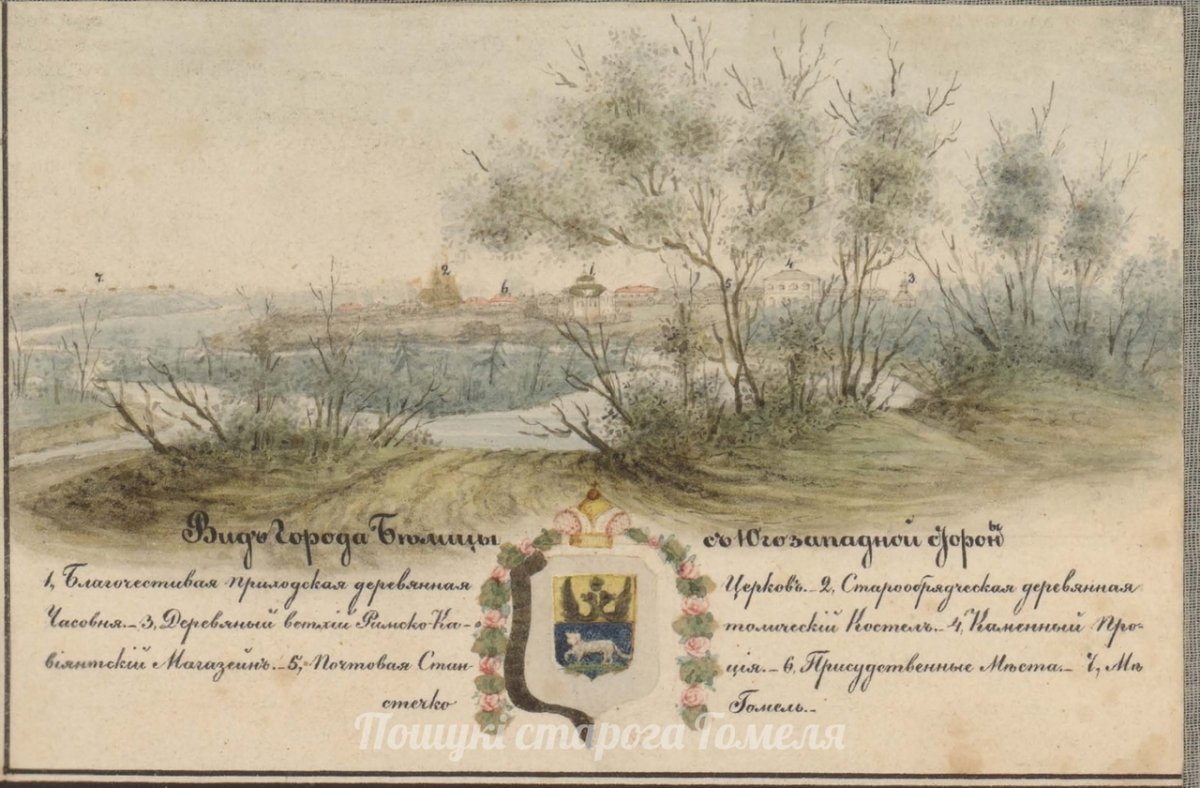 7
2
6
1
5
4
3
Видъ Города Бѣлицы съ Югозападной стороны
1, Благочестивая приходская деревянная Церковь. – 2, Старообрядческая деревянная
Часовня. – 3, Деревяный ветхій Римско-Ка- томическій Костелъ. – 4, Каменный Про-
віянтскій Магазейнъ. – 5, Почтовая Стан- ція. – 6, Присудственные Мѣста. – 7, Мѣ
стечко Гомель. –
Пошукі старога Гомеля